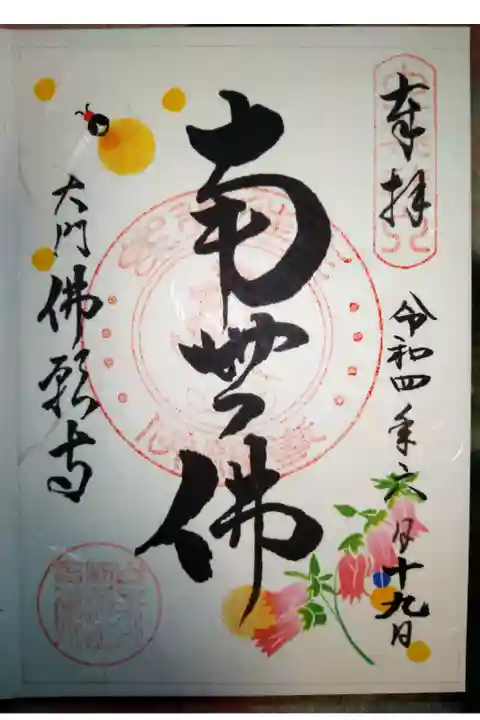 奉拝
令和四年六月十九日
南無佛
大門佛願寺